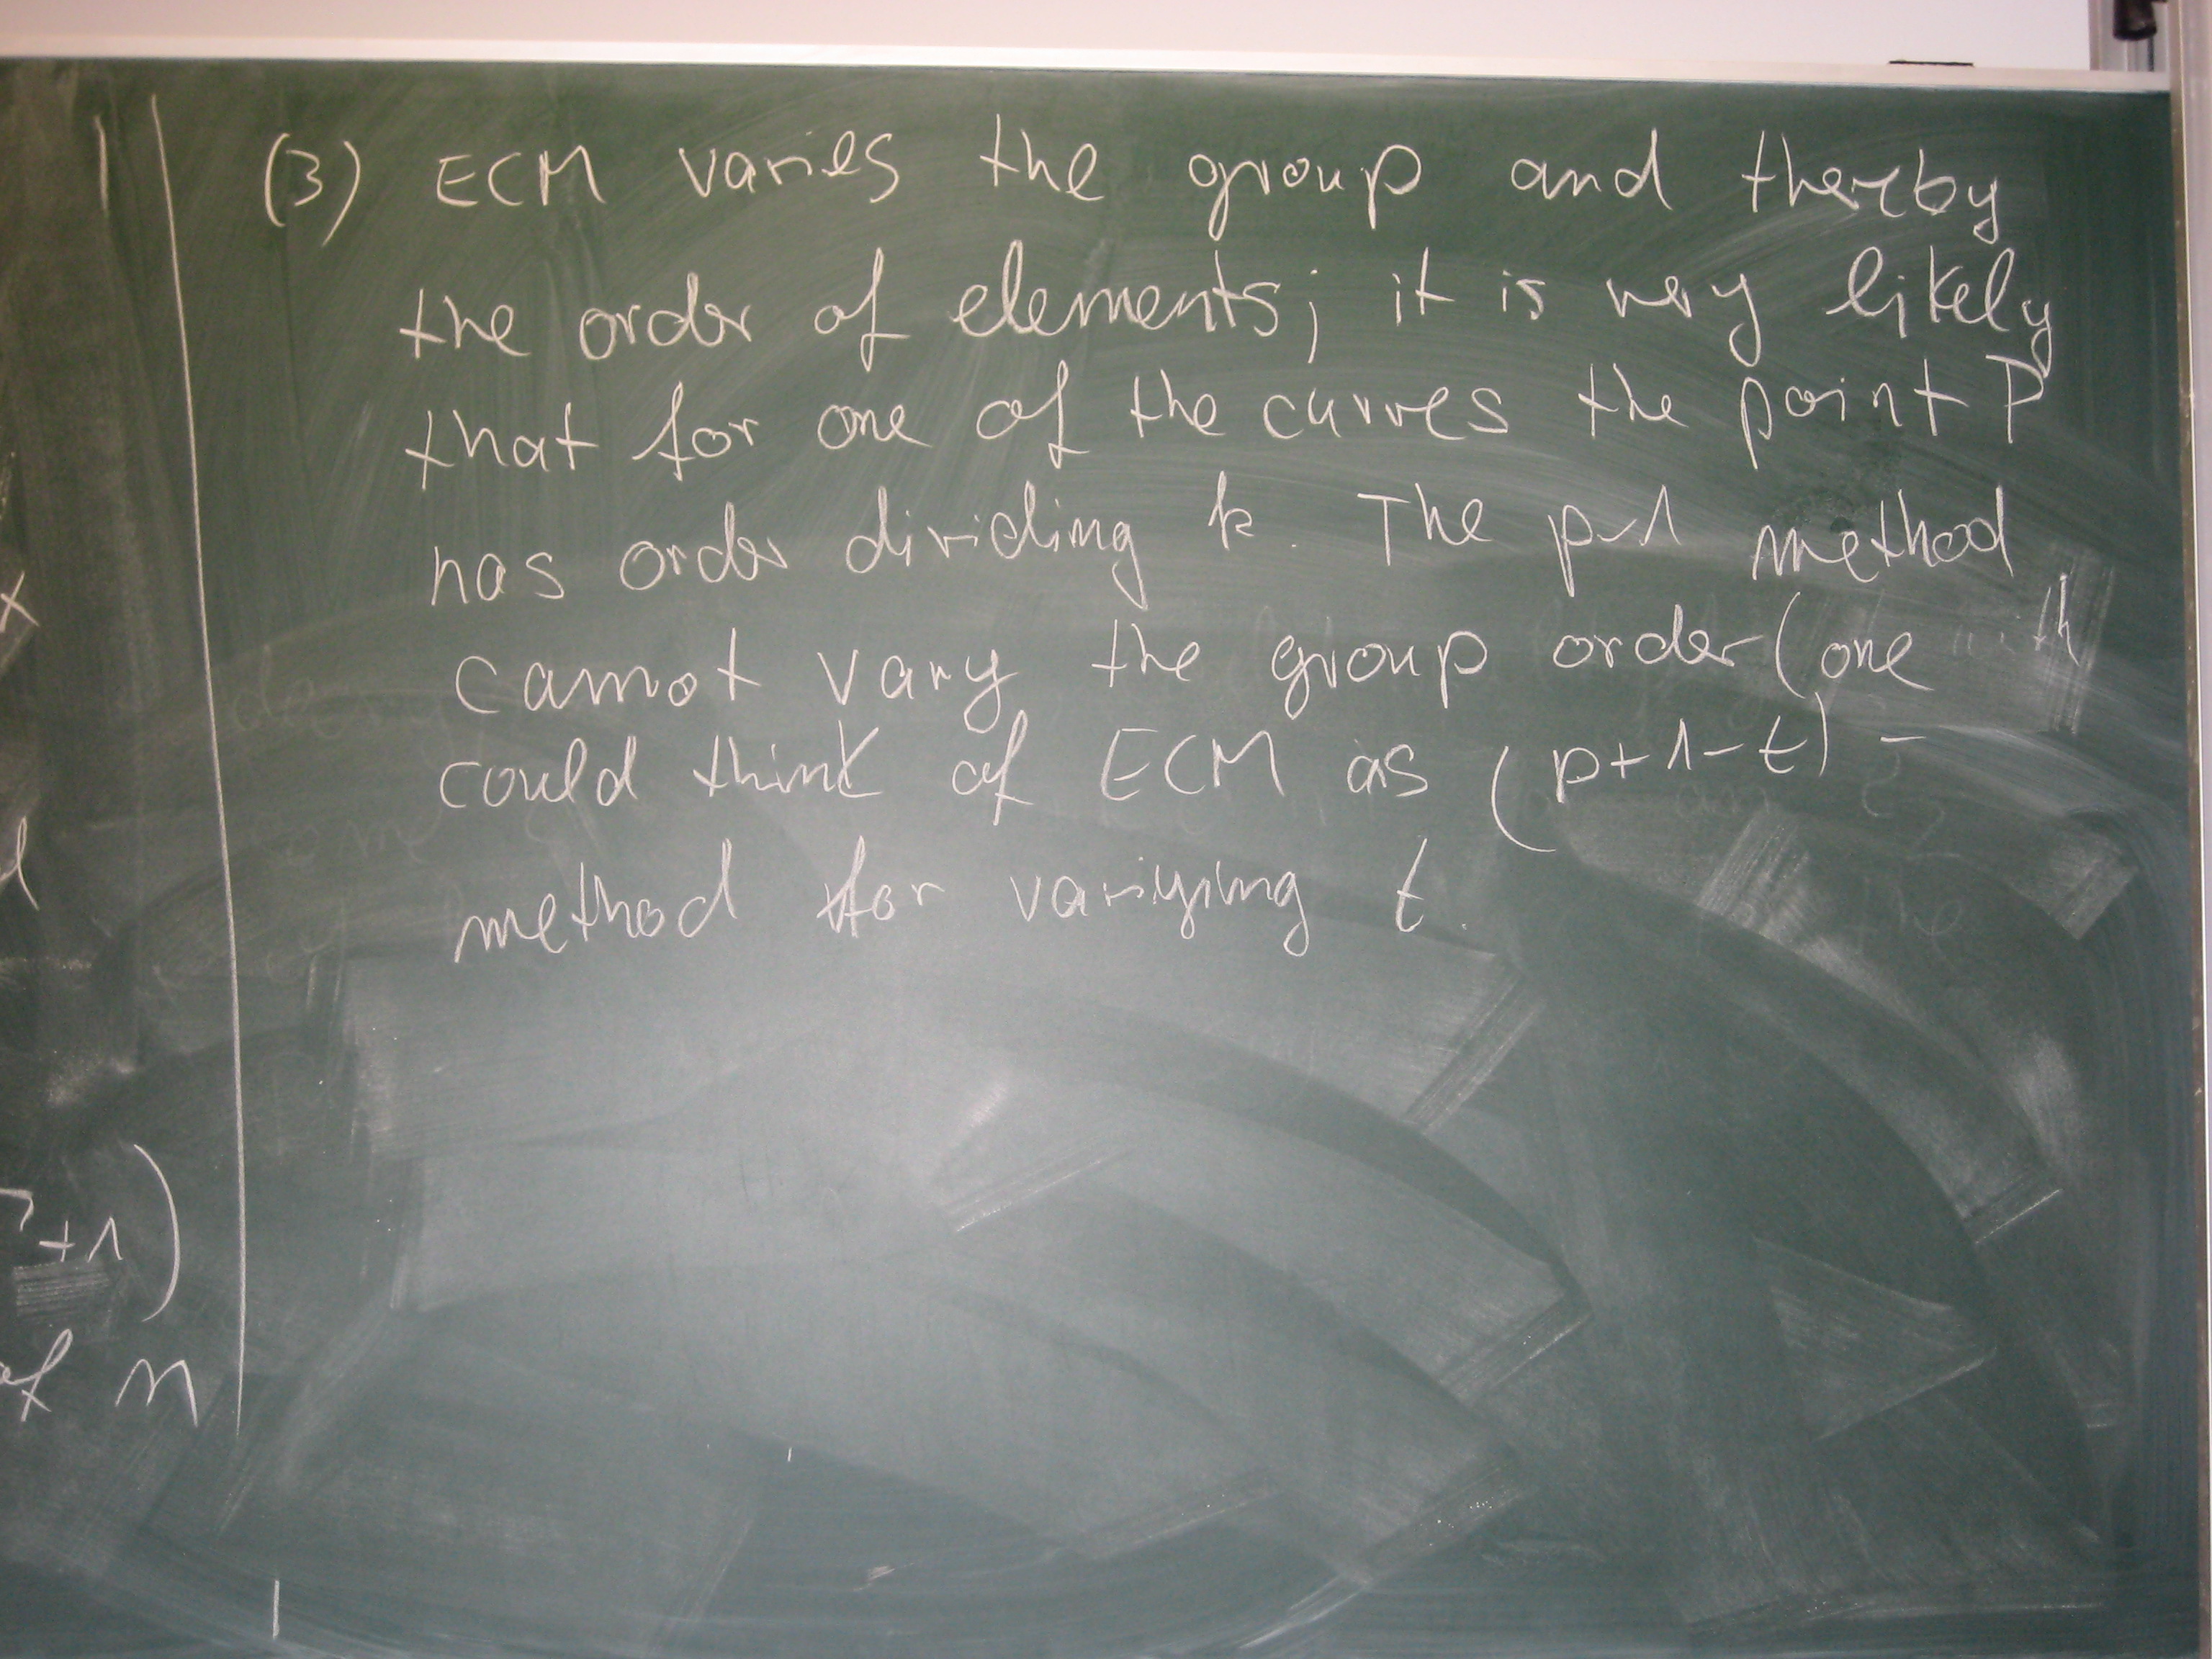 (3) ECM varies the group and thereby
the order of elements; it is very likely
that for one of the curves the point P
has order dividing k. The p-1 method
cannot vary the group order (one
could think of ECM as (p+1-t)-
method for variying t.
+1)
of n